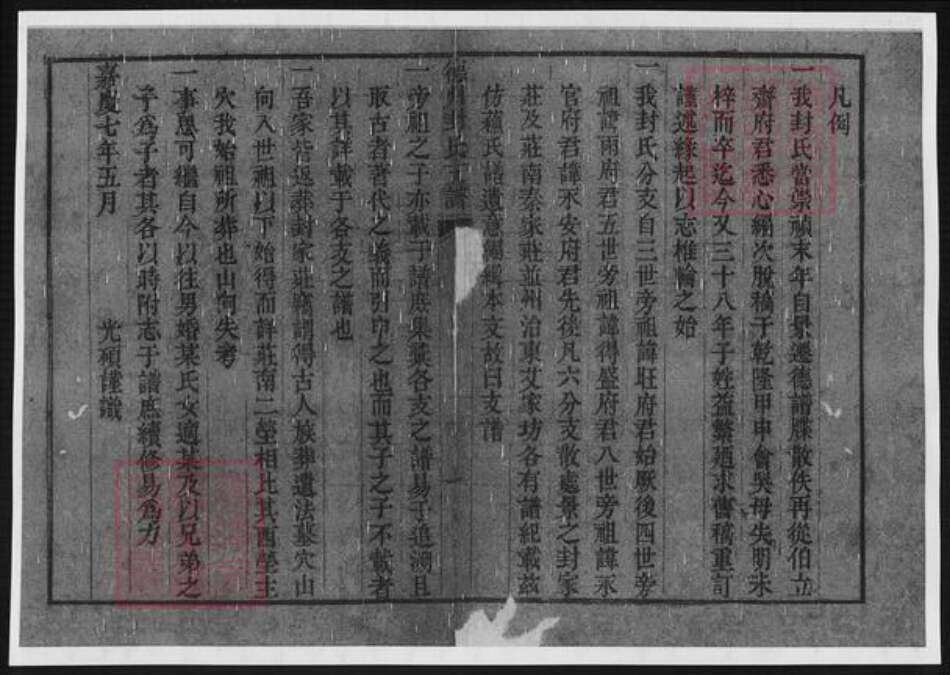 凡例
一我封氏當崇禎末年自景遷德譜牒散佚再從伯立
齋府君悉心編次脫稿于乾隆甲申會吳母失明未
梓而卒迄今又三十八年子姓益繁廼求舊稿重訂
謹述緣起以志椎輪之始
一我封氏分支自三世旁祖諱旺府君始厥後四世旁
祖諱雨府君五世旁祖諱得盛府君八世旁祖諱永
官府君諱永安府君先後凡六分支散處景之封家
莊及莊南秦家莊並州治東艾家坊各有譜紀載茲
仿蘇氏譜遺意 輯本支故曰支譜
德州封氏支譜
一
一帝祖之子亦載于譜庶集彙各支之譜易于追溯且
取古者著代之義而引申之也而其子之子不載者
以其詳載于各支之譜也
一吾家皆返葬封家莊竊謂得古人族葬遺法墓穴山
向入世祖以下始得而詳莊南二塋相比其西塋主
穴我始祖所葬也山向失考
一事思可繼自今以往男婚某氏女適某及以兄弟之
子為子者其各以時附志于譜庶續修易為力
嘉慶七年五月 光碩謹識